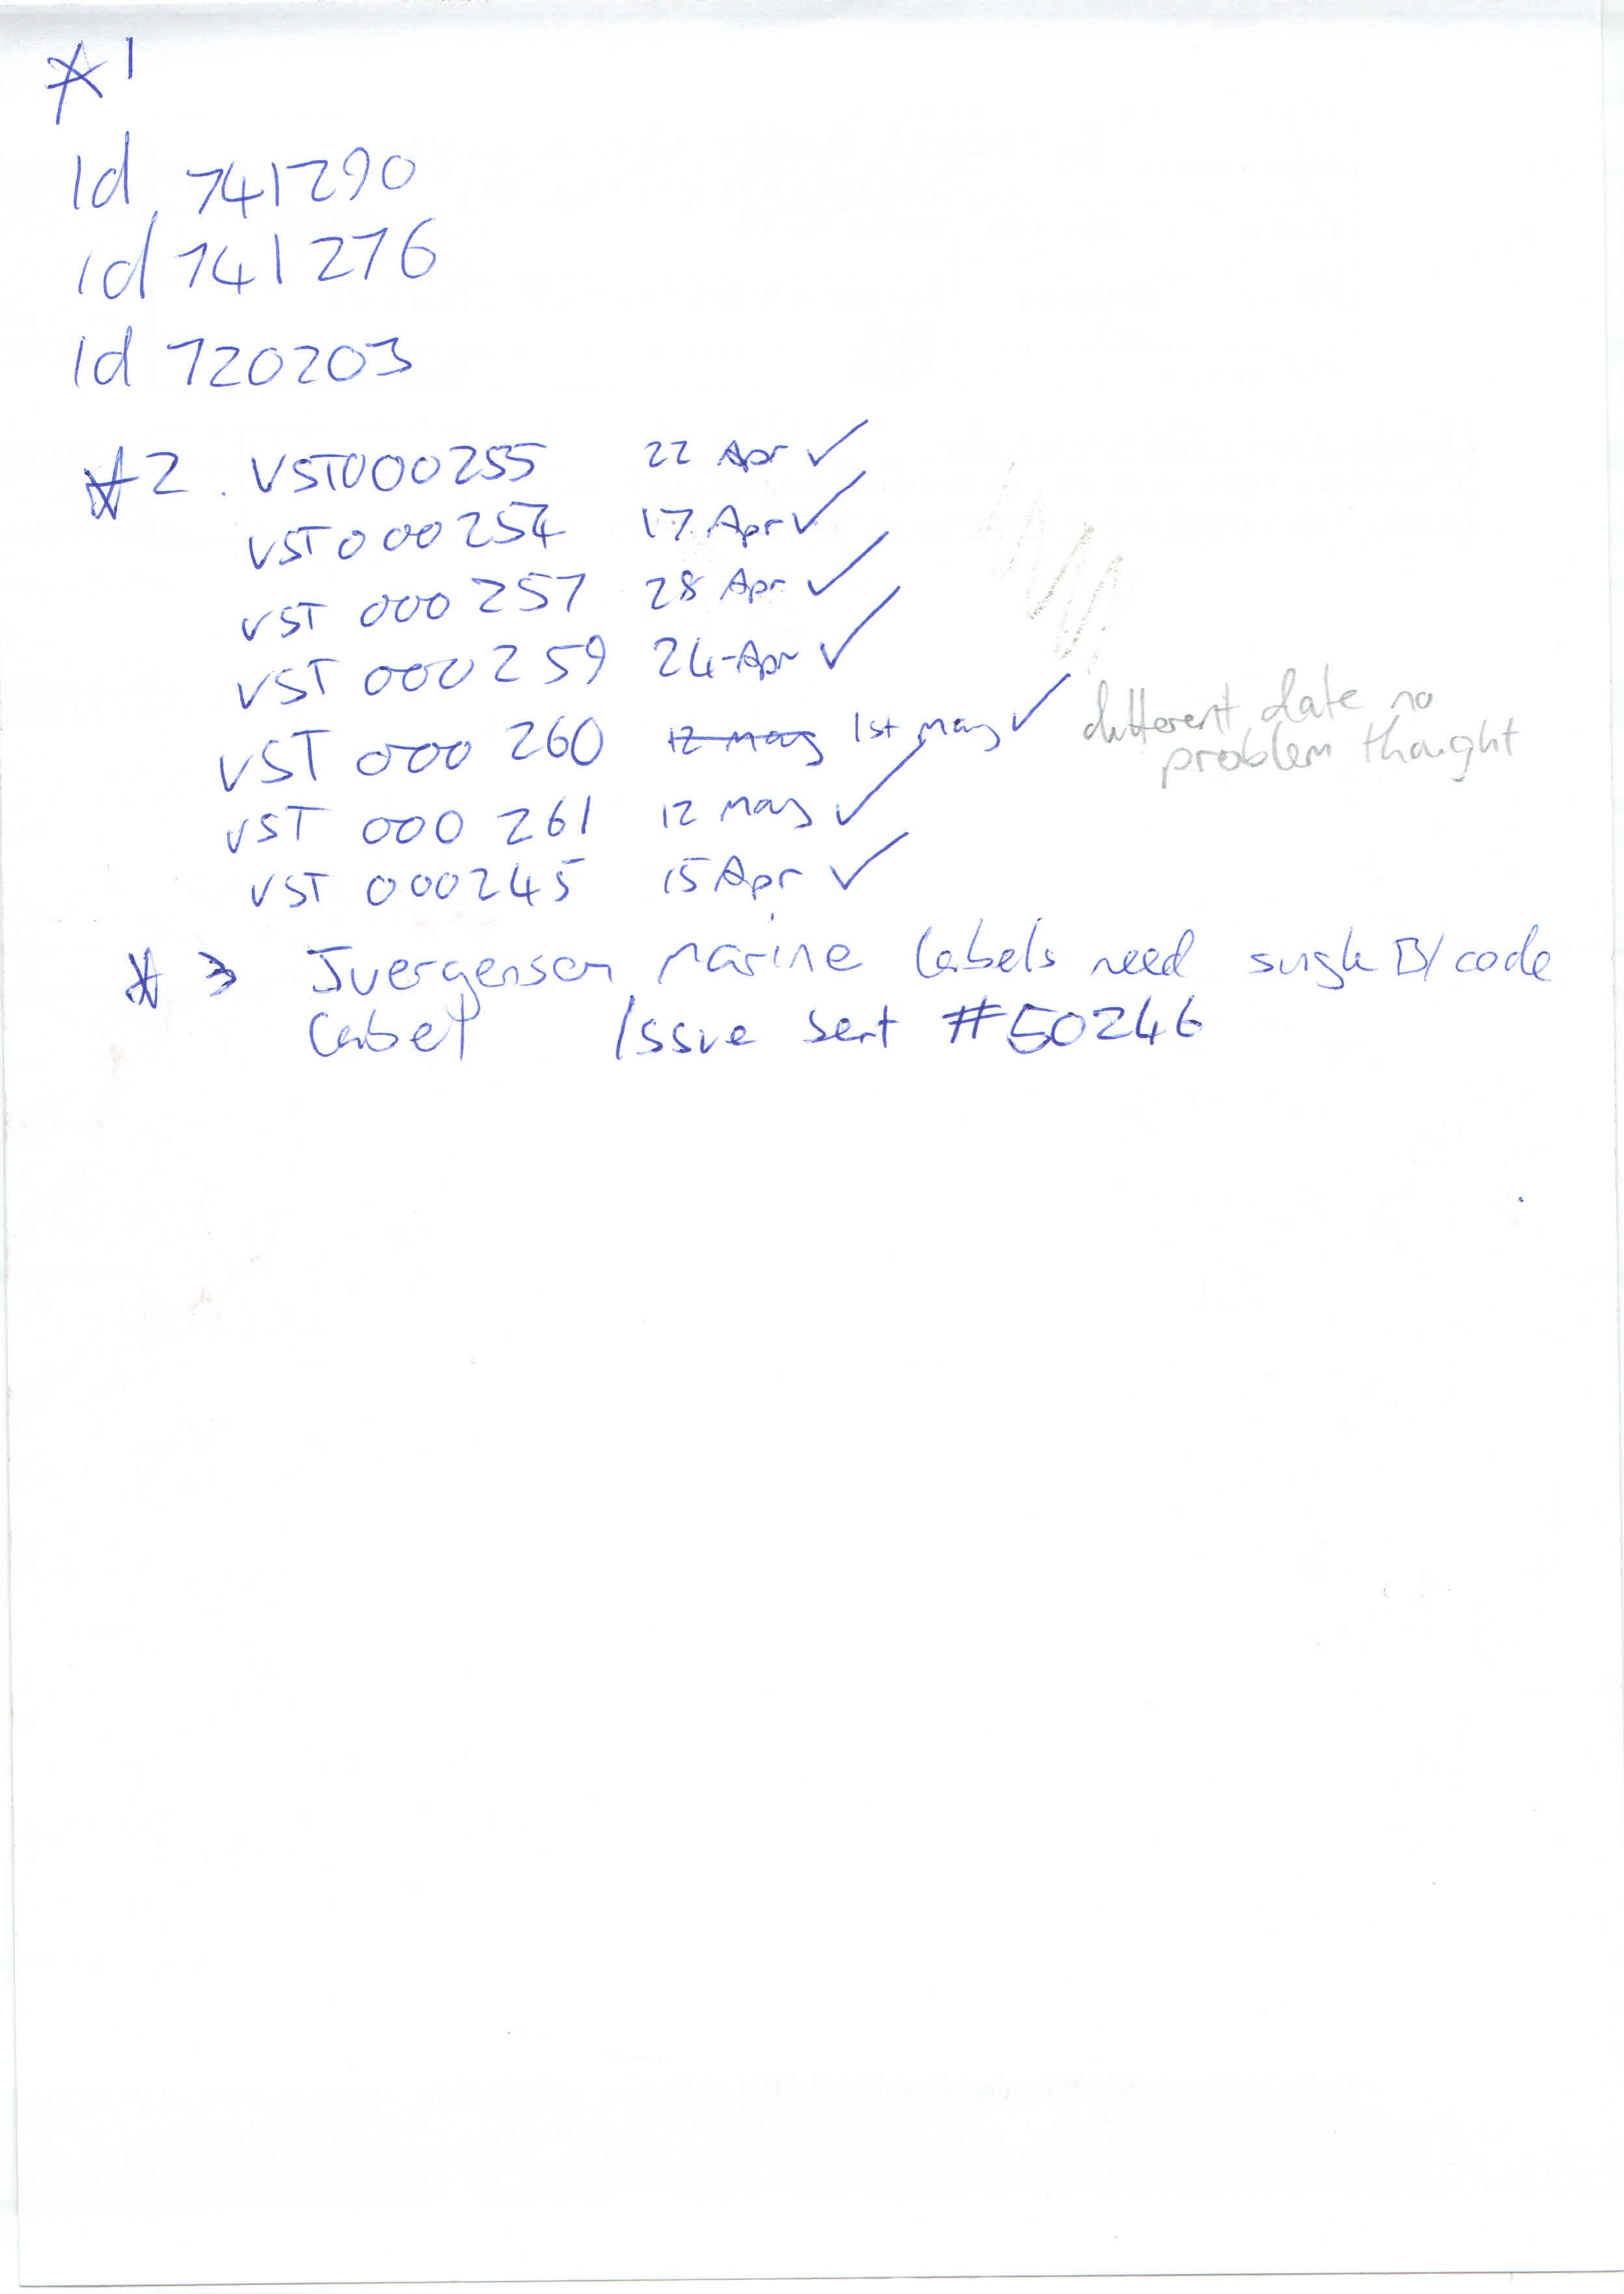 * 1
Id 741290
Id 741276
Id 720203
* 2. VST000255 22 Apr ✓
VST000254 17 Apr ✓
VST 000 257 28 Apr ✓
VST 000 259 24-Apr ✓
VST 000 260 12 May 1st May ✓ different date no
problem thought
VST 000 261 12 May ✓
VST 000245 15 Apr ✓
* 3 Juergensen Marine labels need single B/code
label Issue sent #50246